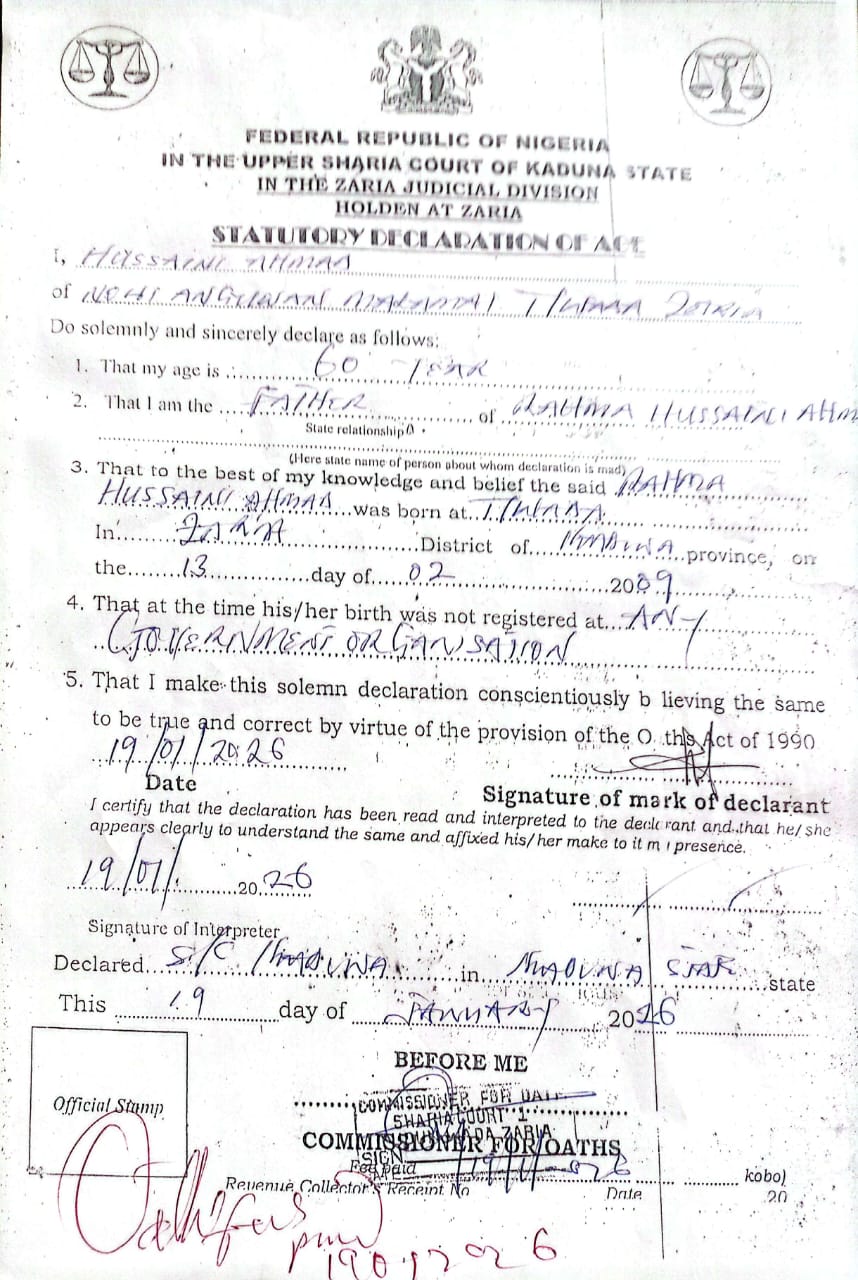 FEDERAL REPUBLIC OF NIGERIA
IN THE UPPER SHARIA COURT OF KADUNA STATE
IN THE ZARIA JUDICIAL DIVISION
HOLDEN AT ZARIA
STATUTORY DECLARATION OF AGE
I, HUSSAINI AHMAD
of ANGUWAN T/WADA ZARIA
Do solemnly and sincerely declare as follows:
1. That my age is 60 YEAR
2. That I am the FATHER of RAHMA HUSSAINI AHM
State relationship
(Here state name of person about whom declaration is mad)
3. That to the best of my knowledge and belief the said RAHMA
HUSSAINI AHMAD was born at T/WADA
In ZARIA District of KADUNA province, on
the 13 day of 02 2009
4. That at the time his/her birth was not registered at ANY
GOVERNMENT ORGANISATION
5. That I make this solemn declaration conscientiously b lieving the same
to be true and correct by virtue of the provision of the O ths Act of 1990
19/01/2026
Date
Signature of mark of declarant
I certify that the declaration has been read and interpreted to the declarant and that he/she
appears clearly to understand the same and affixed his/her make to it m presence.
19/01/ 2026
Signature of Interpreter
Declared S/C KADUNA in KADUNA STATE state
This 19 day of JANUARY 2026
BEFORE ME
Official Stamp
COMMISSIONER FOR OATH
SHARIA COURT 1
ZARIA
COMMISSIONER FOR OATHS
SIGN
Fee paid kobo)
Revenue Collector's Receipt No Date 20